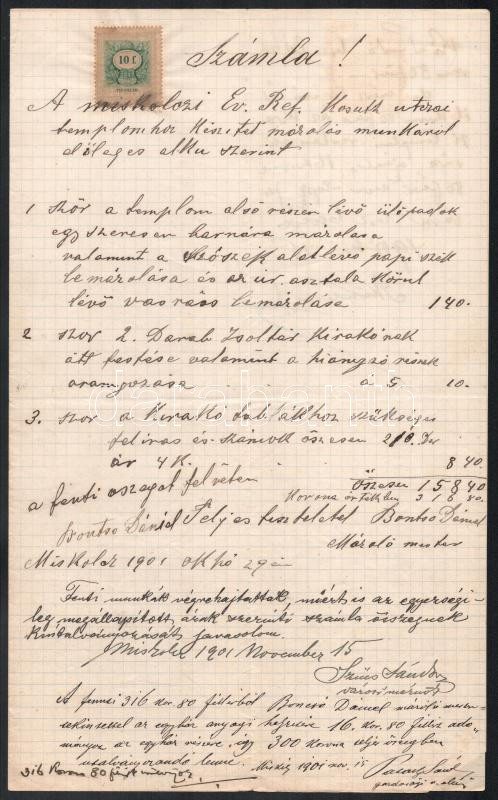 10 f.
Számla!
A miskolczi Ev. Ref. Kosuth utczai
templomhoz készitet mázolás munkárol
előleges alku szerint
1 szór a templom alsó részen lévő ülőpadok
egy szeresen barnára mázolása
valamint a szószék alatlévő papi szék
bemázolása és az úr asztala körül
lévő vasrács bemázolása 140.
2 szor 2. Darab Zsoltár kirakónak
átt festése valamint a hiányzó részek
aranyozása á 5 10.
3. szor a kirakó táblákhoz szükséges
felirás és számok öszesen 210. Dar
ár 4 K. 8 40.
öszesen 158 40
a fenti öszeget felvétem
Korona értékben 316 80.
Bontso Dániel Teljes tisztelettel Bontso Dániel
Mázoló mester
Miskolcz 1901 október 29én
Fenti munkák végrehajtattak, miért is az egyezségi-
leg megállapitott árak szerinti számla összegnek
kiutalványozását javaslom.
Miskolcz 1901 November 15
Szűcs Sándor
városi mérnök
A fennti 316 kor. 80 fillérből Boncsó Dániel mázoló mester
az egyház anyagi helyzete 16. kor. 80 fillér ado-
az egyház részére, igy 300 korona
utalványozandó lenne. Miskolcz 1901 nov. 15
316 Korona 80
gondnok